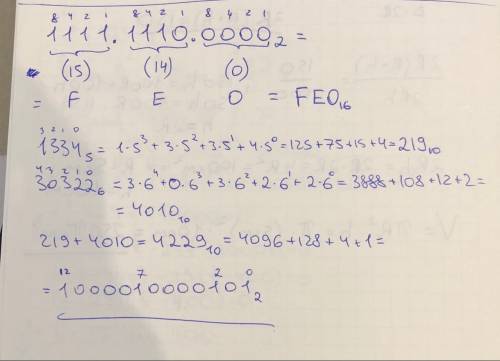 8 4 2 1 8 4 2 1 8 4 2 1
1111.1110.0000₂ =
(15) (14) (0)
= F E O = FEO₁₆
3 2 1 0
1334₅ = 1·5³ + 3·5² + 3·5¹ + 4·5⁰ = 125 + 75 + 15 + 4 = 219₁₀
4 3 2 1 0
30322₆ = 3·6⁴ + 0·6³ + 3·6² + 2·6¹ + 2·6⁰ = 3888 + 108 + 12 + 2 =
= 4010₁₀
219 + 4010 = 4229₁₀ = 4096 + 128 + 4 + 1 =
12 7 2 0
= 1000010000101₂